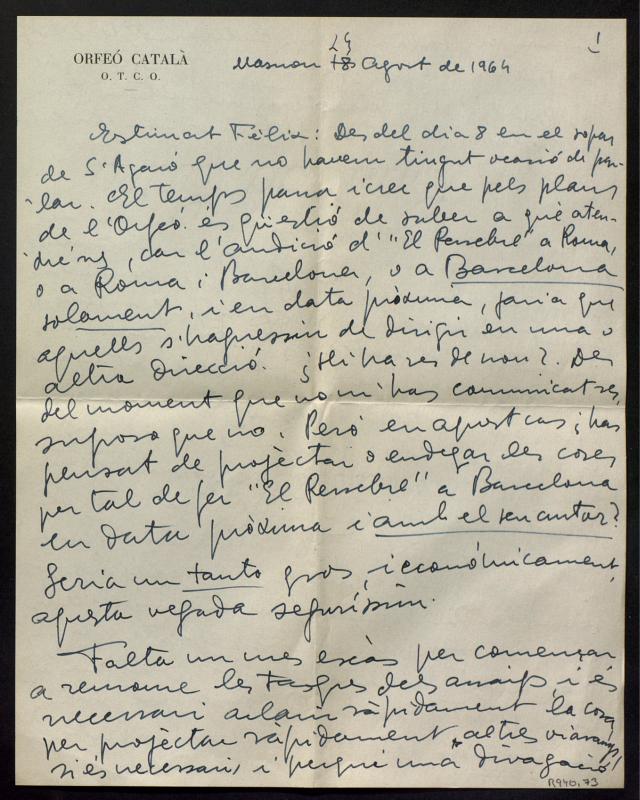 ORFEÓ CATALÀ
O. T. C. O.
1
24
Masnou 18 Agost de 1964
Estimat Fèlix: Des del dia 8 en el sopar
de S'Agaró que no havem tingut ocasió de par-
lar. El temps passa i crec que pels plans
de l'Orfeó es qüestió de saber a què aten-
dre'ns, car l'audició d'"El Pessebre" a Roma,
o a Roma i Barcelona, o a Barcelona
solament, i en data pròxima, faria que
aquells s'haguessin de dirigir en una o
altra direcció. ¿Hi ha res de nou?. Des
del moment que no m'has comunicat res,
suposo que no. Però en aquest cas ¿has
pensat de projectar o endegar les coses
per tal de fer "El Pessebre" a Barcelona
en data pròxima i amb el seu autor?
Seria un tanto gros, i econòmicament,
aquesta vegada seguríssim.
Falta un mes escàs per començar
a rependre les tasques dels assaigs, i és
necessari aclarir ràpidament la cosa
per projectar ràpidament "altres viaranys"
si és necessari, i perquè una divagació
R940,73